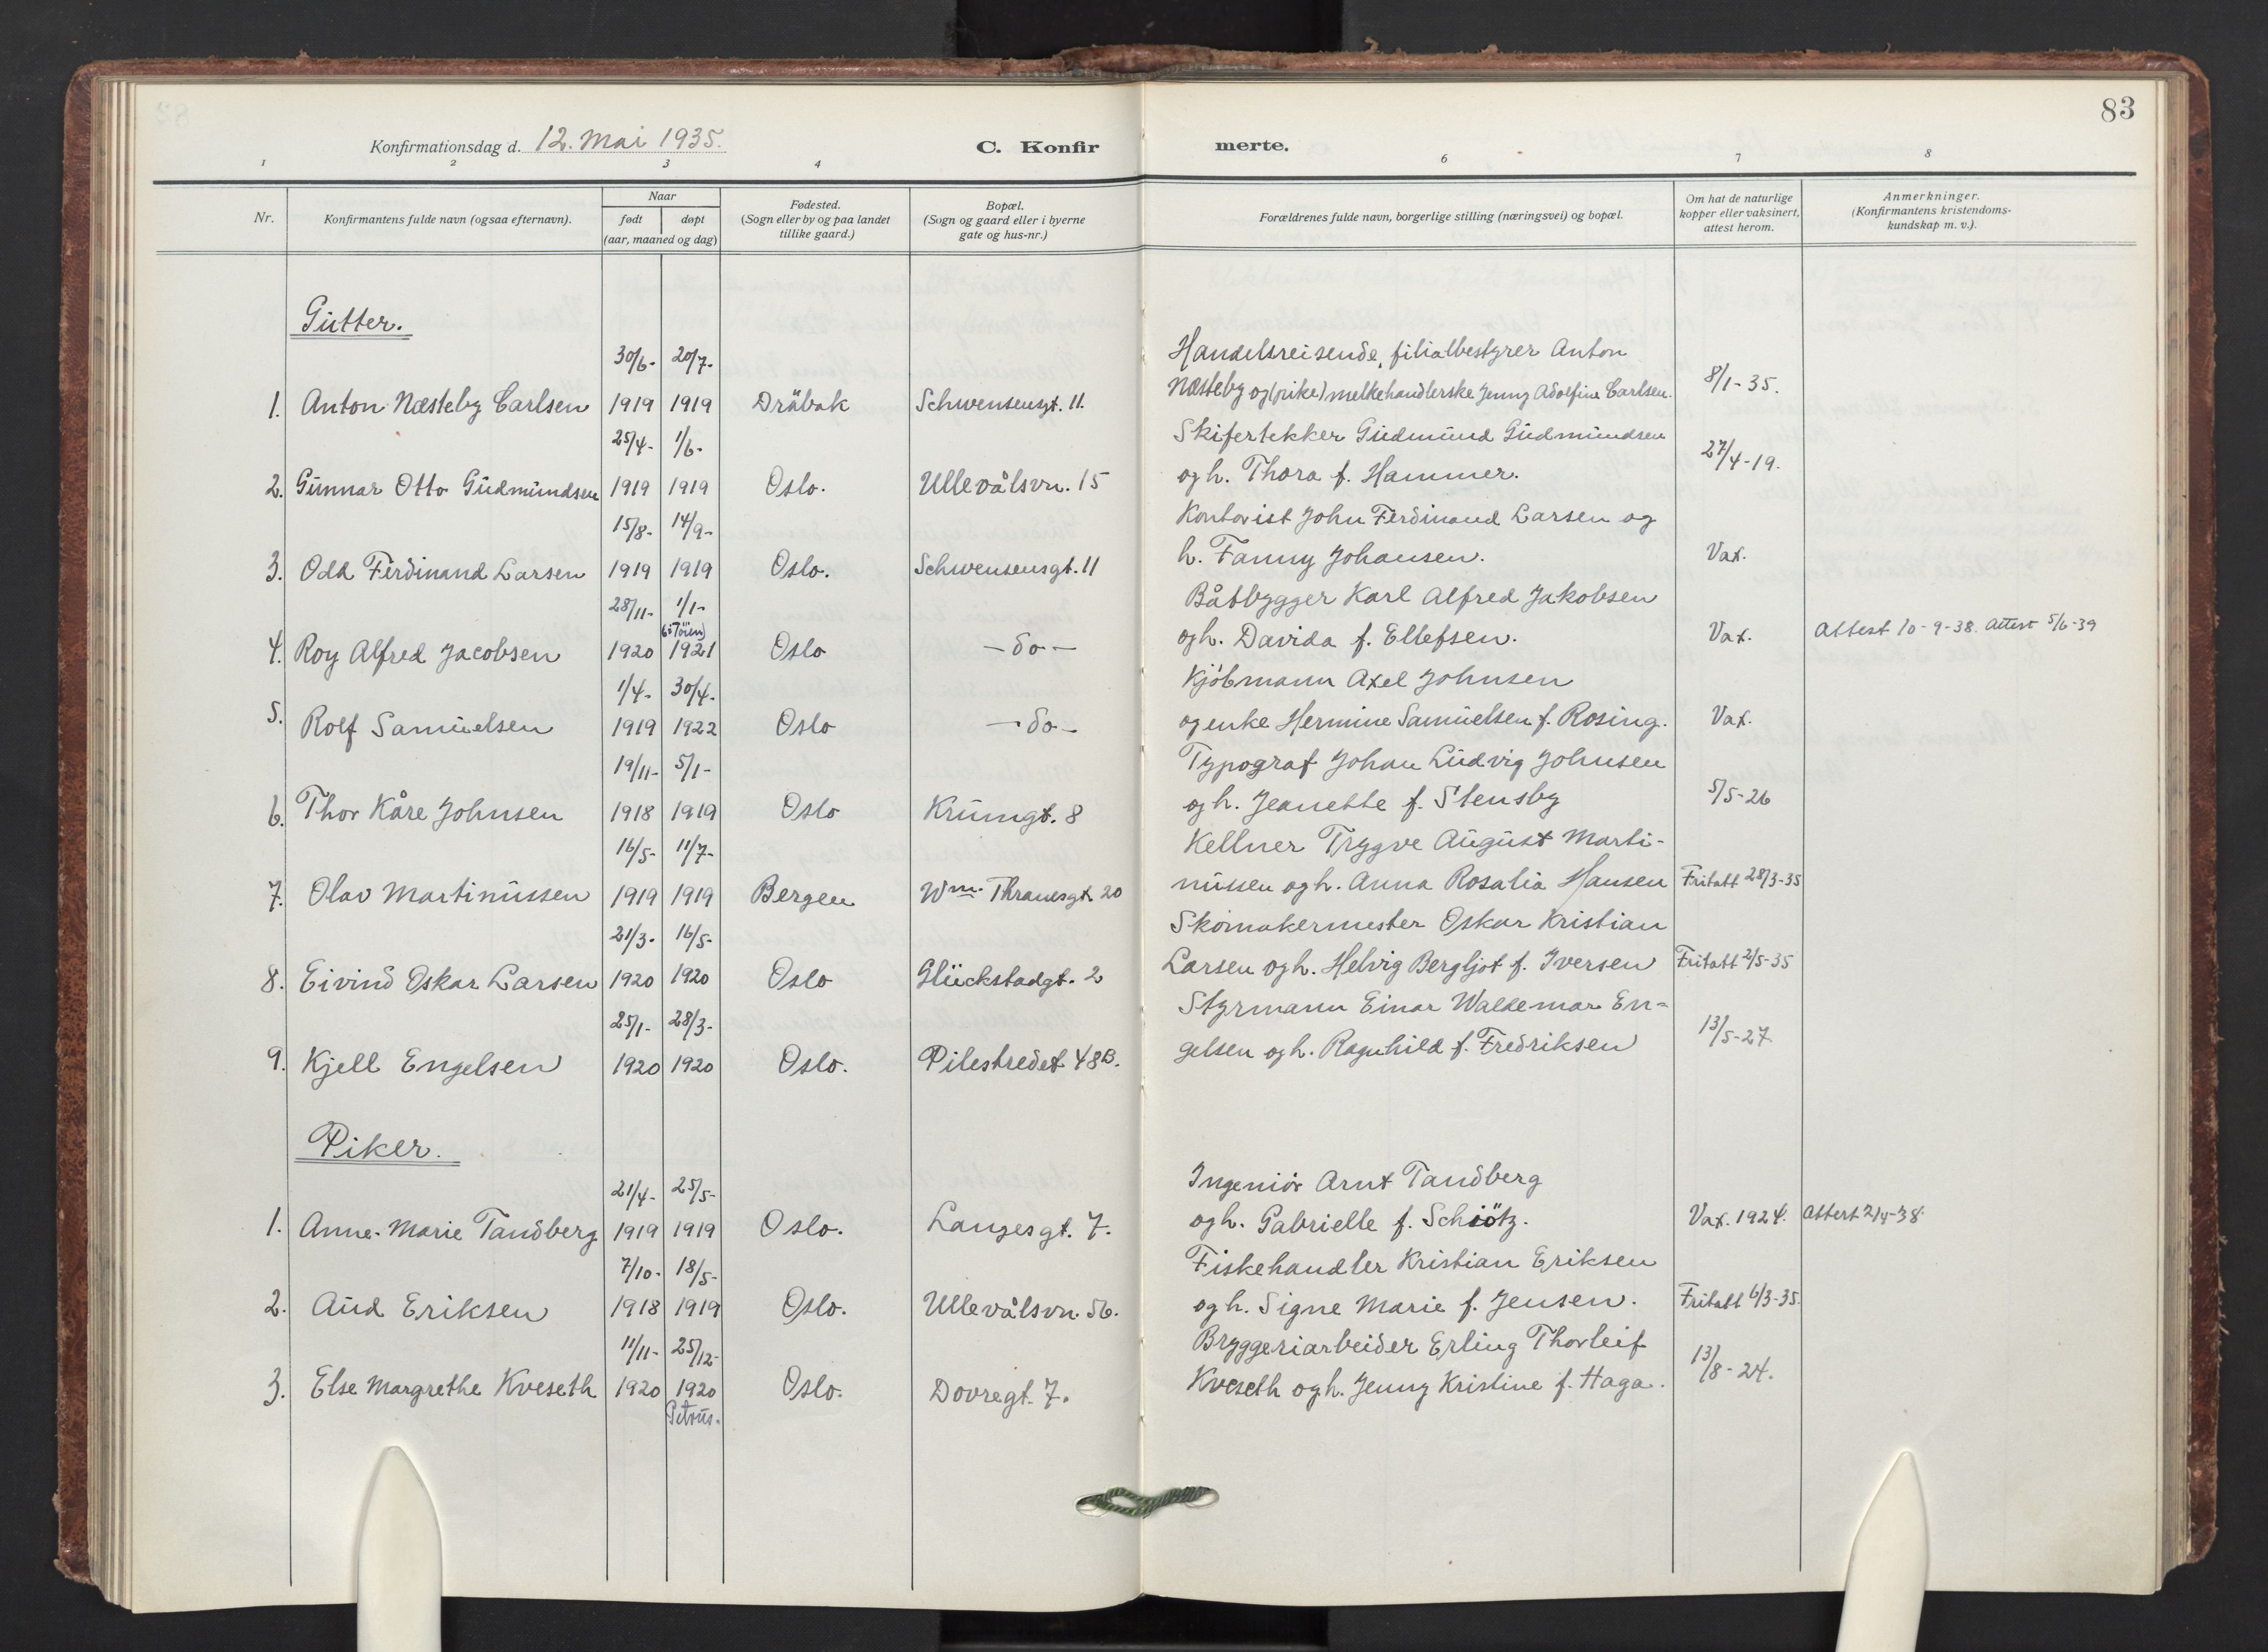 83
Konfirmationsdag d. 12. Mai 1935.
C. Konfir
merte.
1 2 3 4 6 7 8
Nr.
Konfirmantens fulde navn (ogsaa efternavn).
Naar
født døpt
(aar, maaned og dag)
Fødested.
(Sogn eller by og paa landet
tillike gaard.)
Bopæl.
(Sogn og gaard eller i byerne
gate og hus-nr.)
Forældrenes fulde navn, borgerlige stilling (næringsvei) og bopæl.
Om hat de naturlige
kopper eller vaksinert,
attest herom.
Anmerkninger.
(Konfirmantens kristendoms-
kundskap m. v.).
Gutter.
30/6- 20/7- Handelsreisende, filialbestyrer Anton
1. Anton Næsteby Carlsen 1919 1919 Dräbak Schwensensgt. 11. Næsteby og (pike) melkehandlerske Jenny Adolfine Carlsen. 8/1-35.
25/4- 1/6- Skifertekker Gudmund Gudmundsen
2. Gunnar Otto Gudmundsen 1919 1919 Oslo. Ullevålsvn. 15 og h. Thora f. Hammer. 27/4-19.
15/8- 14/9- Kontorist John Ferdinand Larsen og
3. Odd Ferdinand Larsen 1919 1919 Oslo. Schwensensgt. 11 h. Fanny Johansen. Vax.
28/11- 1/1- Båtbygger Karl Alfred Jakobsen
(i Töien)
4. Roy Alfred Jacobsen 1920 1921 Oslo — do — og h. Davida f. Ellefsen. Vax. Attest 10-9-38. Attest 5/6-39
1/4- 30/4- Kjöbmann Axel Johnsen
5. Rolf Samuelsen 1919 1922 Oslo — do — og enke Hermine Samuelsen f. Rosing. Vax.
19/11- 5/1- Typograf Johan Ludvig Johnsen
6. Thor Kåre Johnsen 1918 1919 Oslo Krumgt. 8 og h. Jeanette f. Stensby 5/5-26
16/5- 11/7- Kellner Trygve August Marti-
7. Olav Martinussen 1919 1919 Bergen Wm. Thranesgt. 20 nussen og h. Anna Rosalia Hansen Fritatt 28/3-35
21/3- 16/5- Skomakermester Oskar Kristian
8. Eivind Oskar Larsen 1920 1920 Oslo Glückstadgt. 2 Larsen og h. Helvig Bergljot f. Iversen Fritatt 2/5-35
25/1- 28/3- Styrmann Einar Waldemar En-
9. Kjell Engelsen 1920 1920 Oslo. Pilestredet 48B. gelsen og h. Ragnhild f. Fredriksen 13/5-27
Piker.
21/4- 25/5- Ingeniör Arnt Tandberg
1. Anne-Marie Tandberg 1919 1919 Oslo. Langesgt. 7. og h. Gabrielle f. Schiötz. Vax. 1924. Attest 2/4-38
7/10- 18/5- Fiskehandler Kristian Eriksen
2. Aud Eriksen 1918 1919 Oslo. Ullevålsvn. 56. og h. Signe Marie f. Jensen. Fritatt 6/3-35.
11/11- 25/12- Bryggeriarbeider Erling Thorleif
3. Else Margrethe Kveseth 1920 1920 Oslo. Dovregt. 7. Kveseth og h. Jenny Kristine f. Haga. 13/8-24.
Petrus.